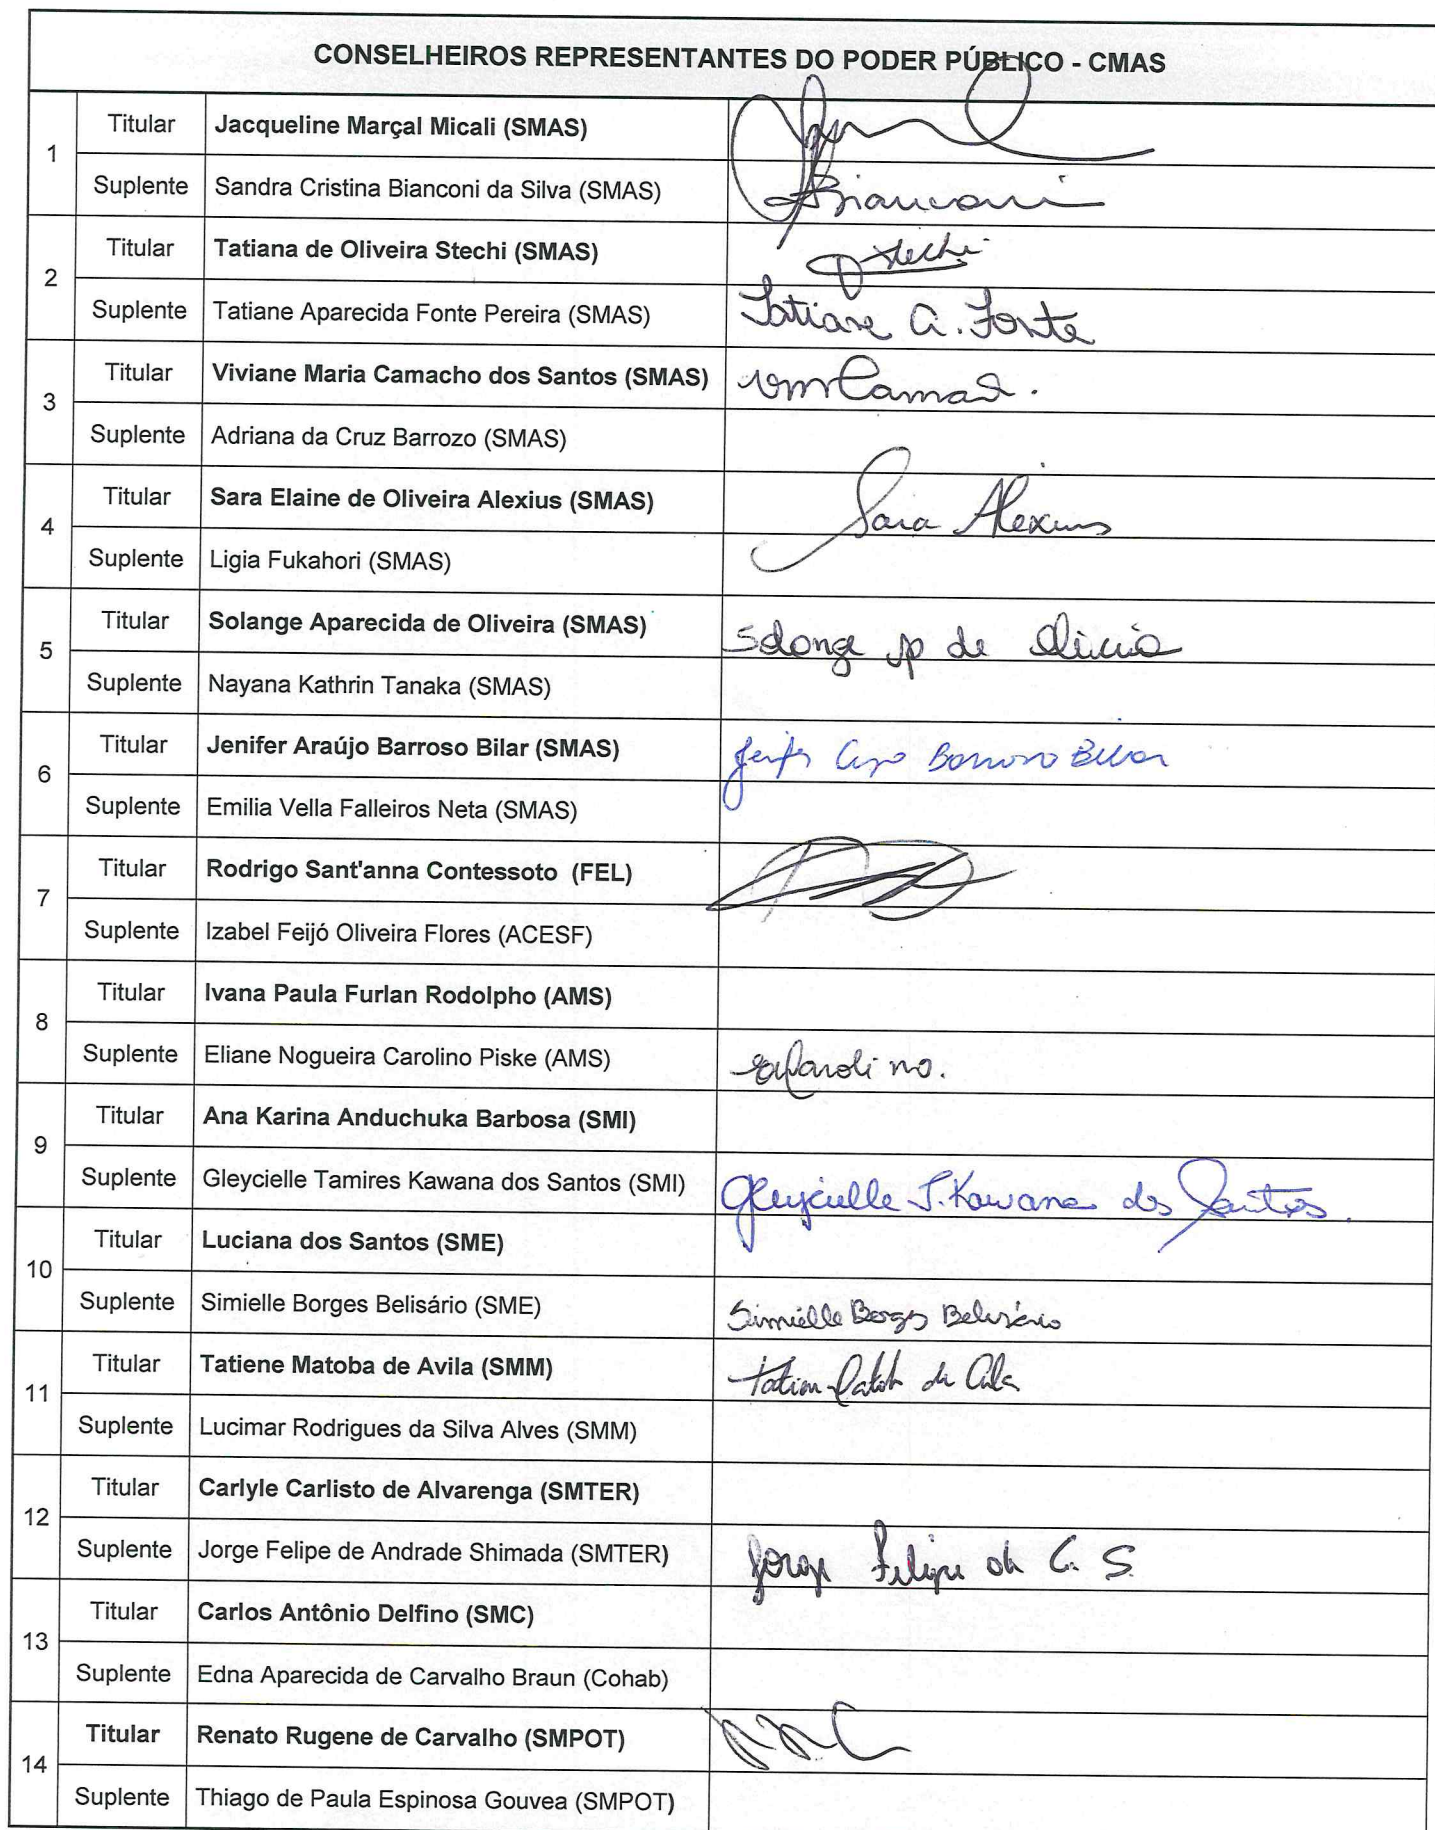 CONSELHEIROS REPRESENTANTES DO PODER PÚBLICO - CMAS
1
Titular Jacqueline Marçal Micali (SMAS)
Suplente Sandra Cristina Bianconi da Silva (SMAS) Bianconi
2
Titular Tatiana de Oliveira Stechi (SMAS) Stechi
Suplente Tatiane Aparecida Fonte Pereira (SMAS) Tatiane A. Fonte
3
Titular Viviane Maria Camacho dos Santos (SMAS)
Suplente Adriana da Cruz Barrozo (SMAS)
4
Titular Sara Elaine de Oliveira Alexius (SMAS) Sara Alexius
Suplente Ligia Fukahori (SMAS)
5
Titular Solange Aparecida de Oliveira (SMAS) Solange Ap de Oliveira
Suplente Nayana Kathrin Tanaka (SMAS)
6
Titular Jenifer Araújo Barroso Bilar (SMAS) Barroso Bilar
Suplente Emilia Vella Falleiros Neta (SMAS)
7
Titular Rodrigo Sant'anna Contessoto (FEL)
Suplente Izabel Feijó Oliveira Flores (ACESF)
8
Titular Ivana Paula Furlan Rodolpho (AMS)
Suplente Eliane Nogueira Carolino Piske (AMS)
9
Titular Ana Karina Anduchuka Barbosa (SMI)
Suplente Gleycielle Tamires Kawana dos Santos (SMI) Gleycielle T. Kawana dos Santos.
10
Titular Luciana dos Santos (SME)
Suplente Simielle Borges Belisário (SME) Simielle Borges Belisário
11
Titular Tatiene Matoba de Avila (SMM)
Suplente Lucimar Rodrigues da Silva Alves (SMM)
12
Titular Carlyle Carlisto de Alvarenga (SMTER)
Suplente Jorge Felipe de Andrade Shimada (SMTER) Jorge Felipe de A. S
13
Titular Carlos Antônio Delfino (SMC)
Suplente Edna Aparecida de Carvalho Braun (Cohab)
14
Titular Renato Rugene de Carvalho (SMPOT)
Suplente Thiago de Paula Espinosa Gouvea (SMPOT)